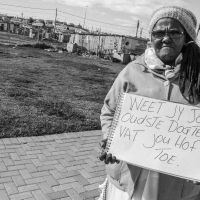 WEET JY JO
OUDSTE DOGTE
VAT JOU HOF
TOE.